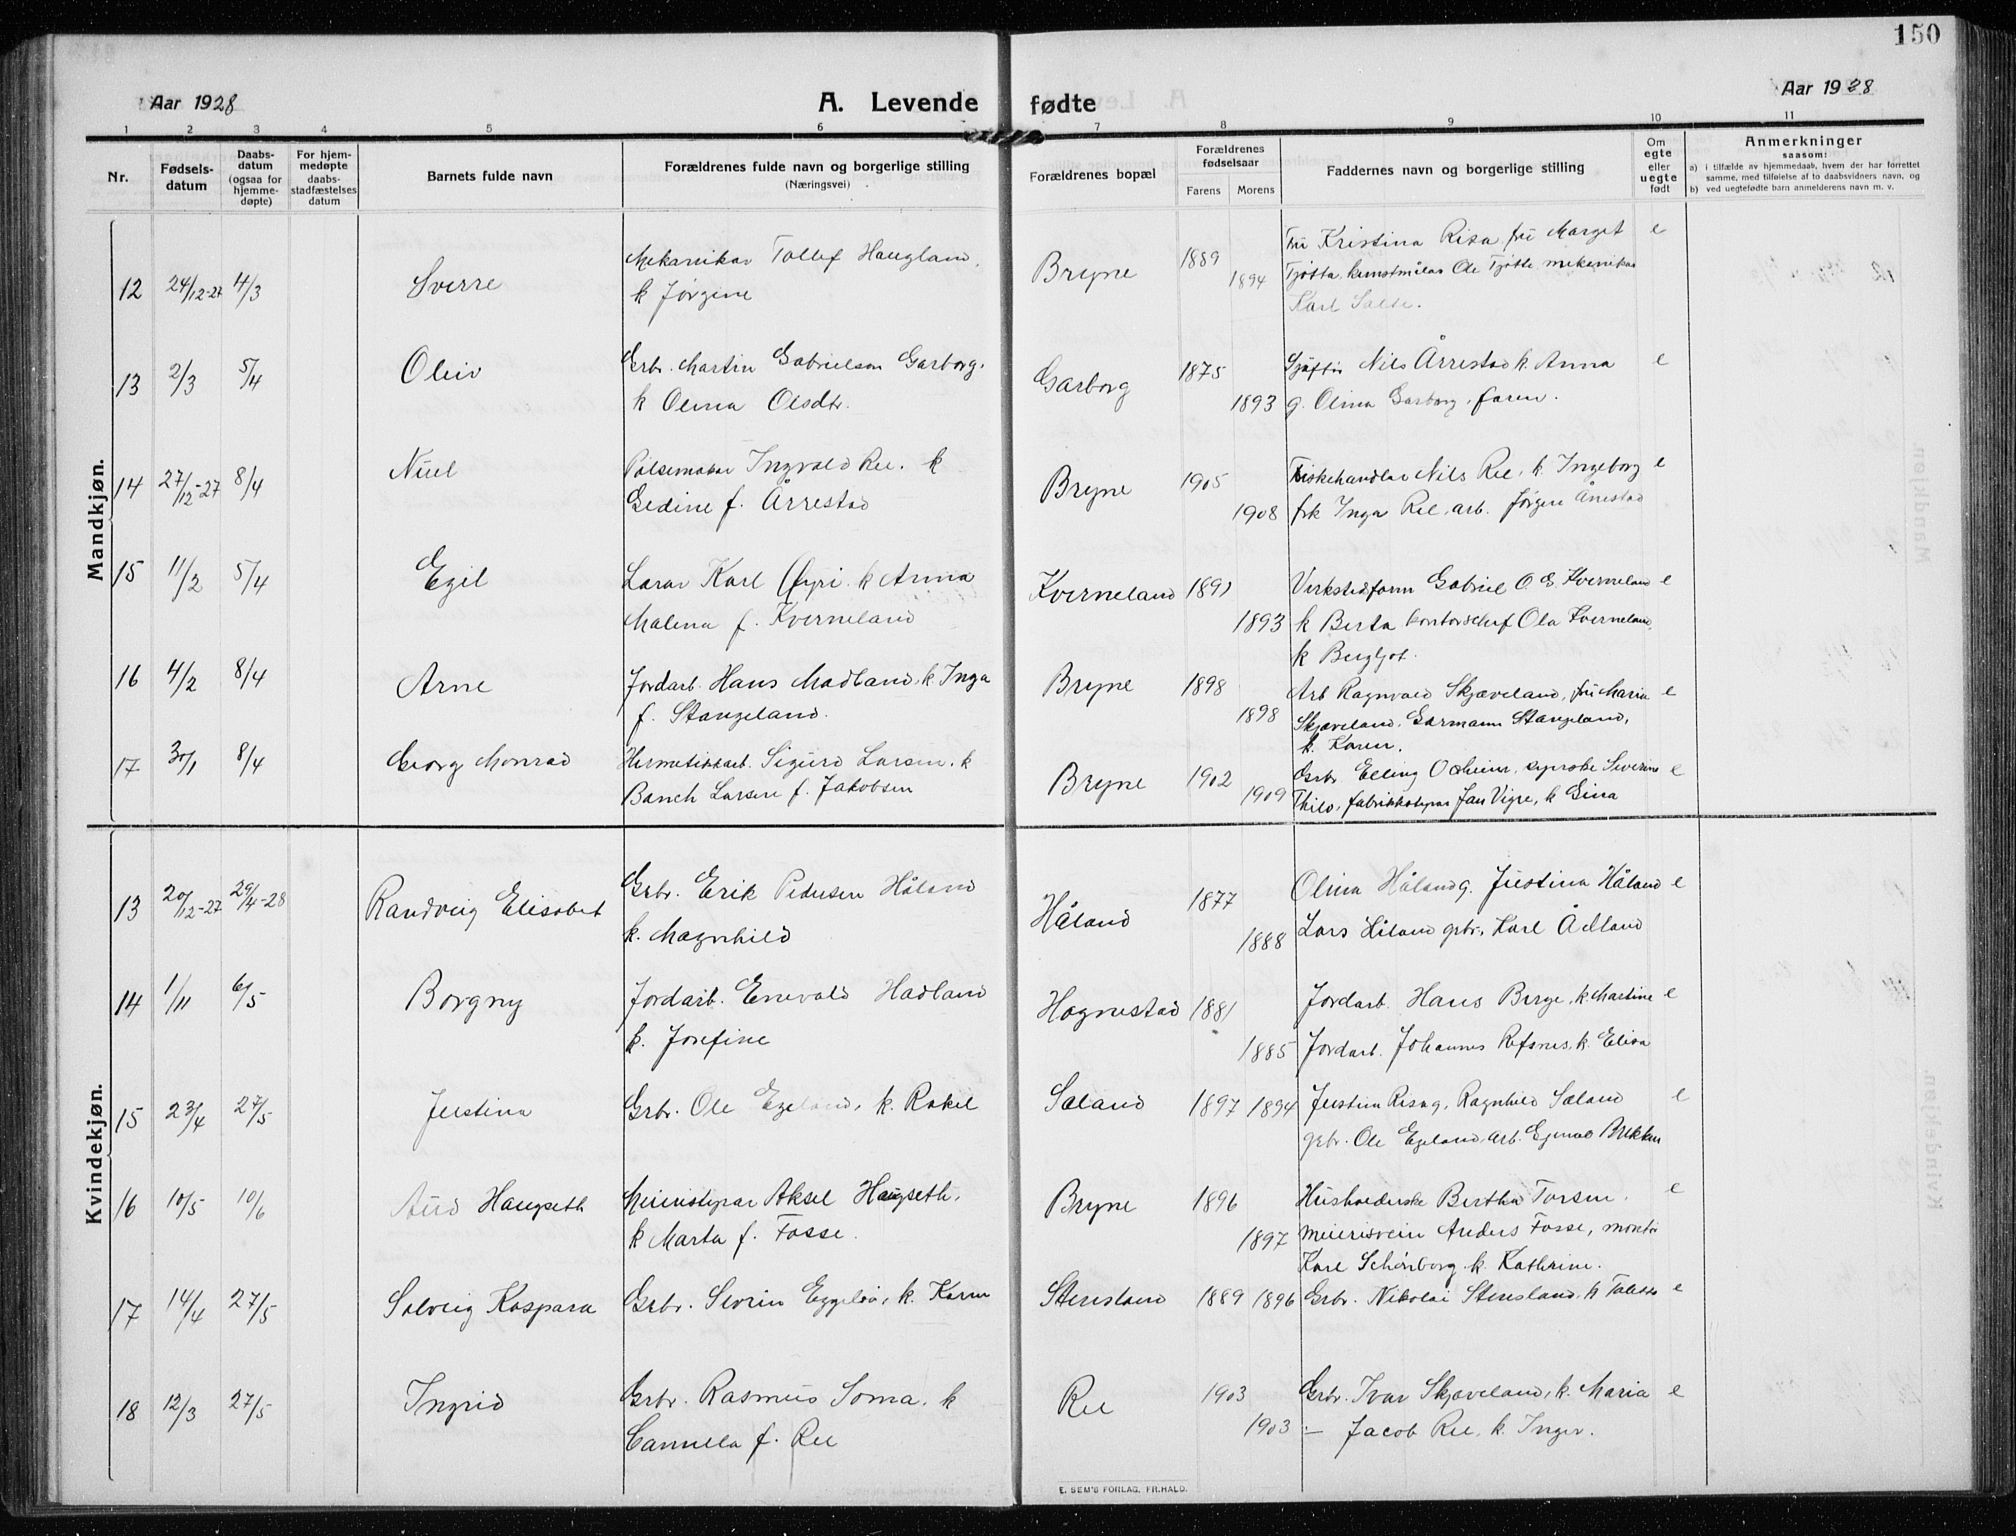 150
Aar 1928
A. Levende fødte
Aar 1928
1 2 3 4 5 6 7 8 9 10 11
Nr.
Fødsels-
datum
Daabs-
datum
(ogsaa for
hjemme-
døpte)
For hjem-
medøpte
daabs-
stadfæstelses
datum
Barnets fulde navn
Forældrenes fulde navn og borgerlige stilling
(Næringsvei)
Forældrenes bopæl
Forældrenes
fødselsaar
Farens Morens
Faddernes navn og borgerlige stilling
Om
egte
eller
uegte
født
Anmerkninger
saasom:
a) i tilfælde av hjemmedaab, hvem der har forrettet
samme, med tilføielse af to daabsvidners navn, og
b) ved uegtefødte barn anmelderens navn m. v.
Mandkjøn.
12 24/12-27 4/3 Sverre
Mekanikar Tollef Haugland,
k Jørgine
Bryne 1889 1894
Fru Kristina Risa, fru Marget e
Tjøtta, kunstmålar Ole Tjøtta mekanikar
Karl Salte.
13 2/3 5/4 Oliv
Grb. Martin Gabrielsen Garborg,
k Olina Olsdtr.
Garborg 1875 1893
Nils Årrestad k. Anna e
g. Olina Garborg, faren.
14 27/12-27 8/4
Pølsemakar Ingvald Ree. k
Gedine f. Årrestad
Bryne 1905 1908
Fiskehandlar Nils Ree, k. Ingeborg e
frk Inga Ree, arb. Jørgen Årrestad
15 11/2 5/4 Egil
Lærar Karl Øyri k Anna
Malena f. Kverneland
Kverneland 1891 1893
Verkstedform Gabriel O. E. Kverneland e
k Berta kontorschef Ola Kverneland,
k Bergljot.
16 4/2 8/4 Arne
Jordarb. Hans Madland, k. Inga
f. Stangeland.
Bryne 1898 1898
Arb Ragnvald Skjæveland, fru Maria e
Skjæveland, Gærmann Stangeland,
k. Karen.
17 30/1 8/4 Georg Monrad
Hermetikkarb. Sigurd Larsen, k
Larsen f. Jakobsen
Bryne 1902 1909
Grbr. Elling syerske Severine e
Thilo, fabrikkstyrar Jan Vigre, k Gina
Kvindekjøn.
13 20/12-27 29/4-28 Randveig Elisabet
Grbr. Erik Pedersen Håland
k. Magnhild
Håland 1877 1888
Olina Håland g. Justina Håland e
Lars Håland grbr, Karl Ådland
14 1/11 6/5 Borgny
Jordarb. Enevald Hadland
k. Josefine
Hognestad 1881 1885
Jordarb. Hans Berge, k Martine e
Jordarb. Johannes Refsnes, k. Elisa
15 23/4 27/5 Justina
Grbr. Ole Egeland, k. Rakel
Sæland 1897 1894
Justina Risa g, Ragnhild Sæland e
grbr. Ole Egeland, arb. Brekken
16 10/5 10/6 Aud Haugseth
Meieristyrar Aksel Haugseth,
k Marta f. Fosse.
Bryne 1896 1897
Husholderske Bertha Torsen. e
meierisvein Anders Fosse, montør
Karl Schønborg k. Kathrine.
17 14/4 27/5 Solveig Kaspara
Grbr. Sevrin k. Karen
Stensland 1889 1896
Grbr. Nikolai Stensland, k e
18 12/3 27/5 Ingrid
Grbr. Rasmus Soma, k
Camilla f. Ree
Ree 1903 1903
Grbr. Ivar Skjæveland, k. Maria e
— Jacob Ree, k. Inger.
E. SEM'S FORLAG, FR.HALD.